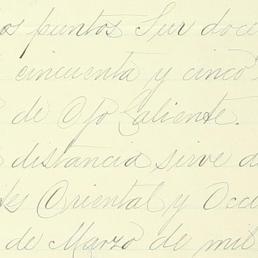 os puntos Sur doce
cincuenta y cinco
de Ojo Caliente.
distancia sirve d
les Oriental y Occi
de Marzo de mil